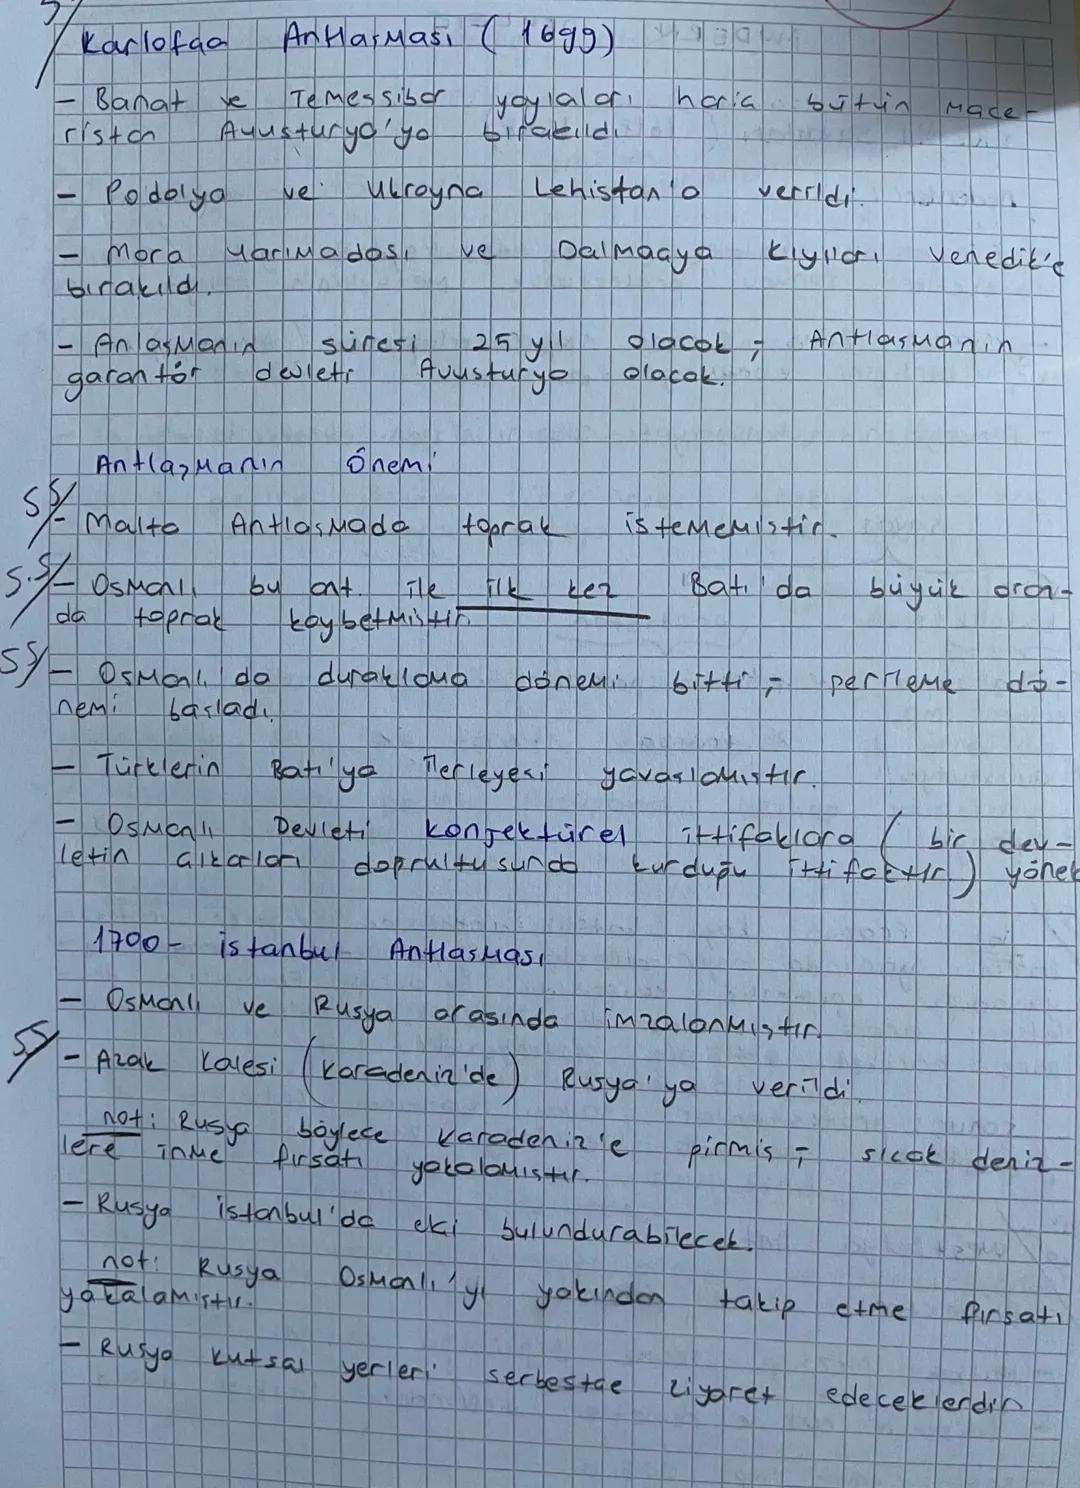 Karlofça Antlaşması (1699)
- Banat ve Temeşşibar yaylaları hariç bütün Mace-
ristan Avusturya'ya bırakıldı
- Podolya ve Ukrayna Lehistan'a verildi.
- Mora Yarımadası ve Dalmaçya kıyıları Venedik'e
bırakıldı.
- Anlaşmanın süresi 25 yıl olacak ; Antlaşmanın
garantör devleti Avusturya olacak.
Antlaşmanın önemi
SS/- Malta Antlaşmada toprak istememiştir.
S.S/- Osmanlı bu ant. ile ilk kez Batı'da büyük oran-
da toprak kaybetmiştir.
SS/- Osmanlı'da duraklama dönemi bitti ; gerileme dö-
nemi başladı.
- Türklerin Batı'ya ilerleyesi yavaşlamıştır.
- Osmanlı Devleti konjektürel ittifaklara ( bir dev-
letin çıkarları doğrultusunda kurduğu ittifaktır.) yönel
1700- istanbul Antlaşması
- Osmanlı ve Rusya arasında imzalanmıştır.
SS/- Azak Kalesi (Karadeniz'de) Rusya'ya verildi.
not: Rusya böylece Karadeniz'e girmiş ; sıcak deniz-
lere inme fırsatı yakalamıştır.
- Rusya istanbul'da elçi bulundurabilecek.
not: Rusya Osmanlı'yı yakından takip etme fırsatı
yakalamıştır.
- Rusya kutsal yerleri serbestçe ziyaret edeceklerdir